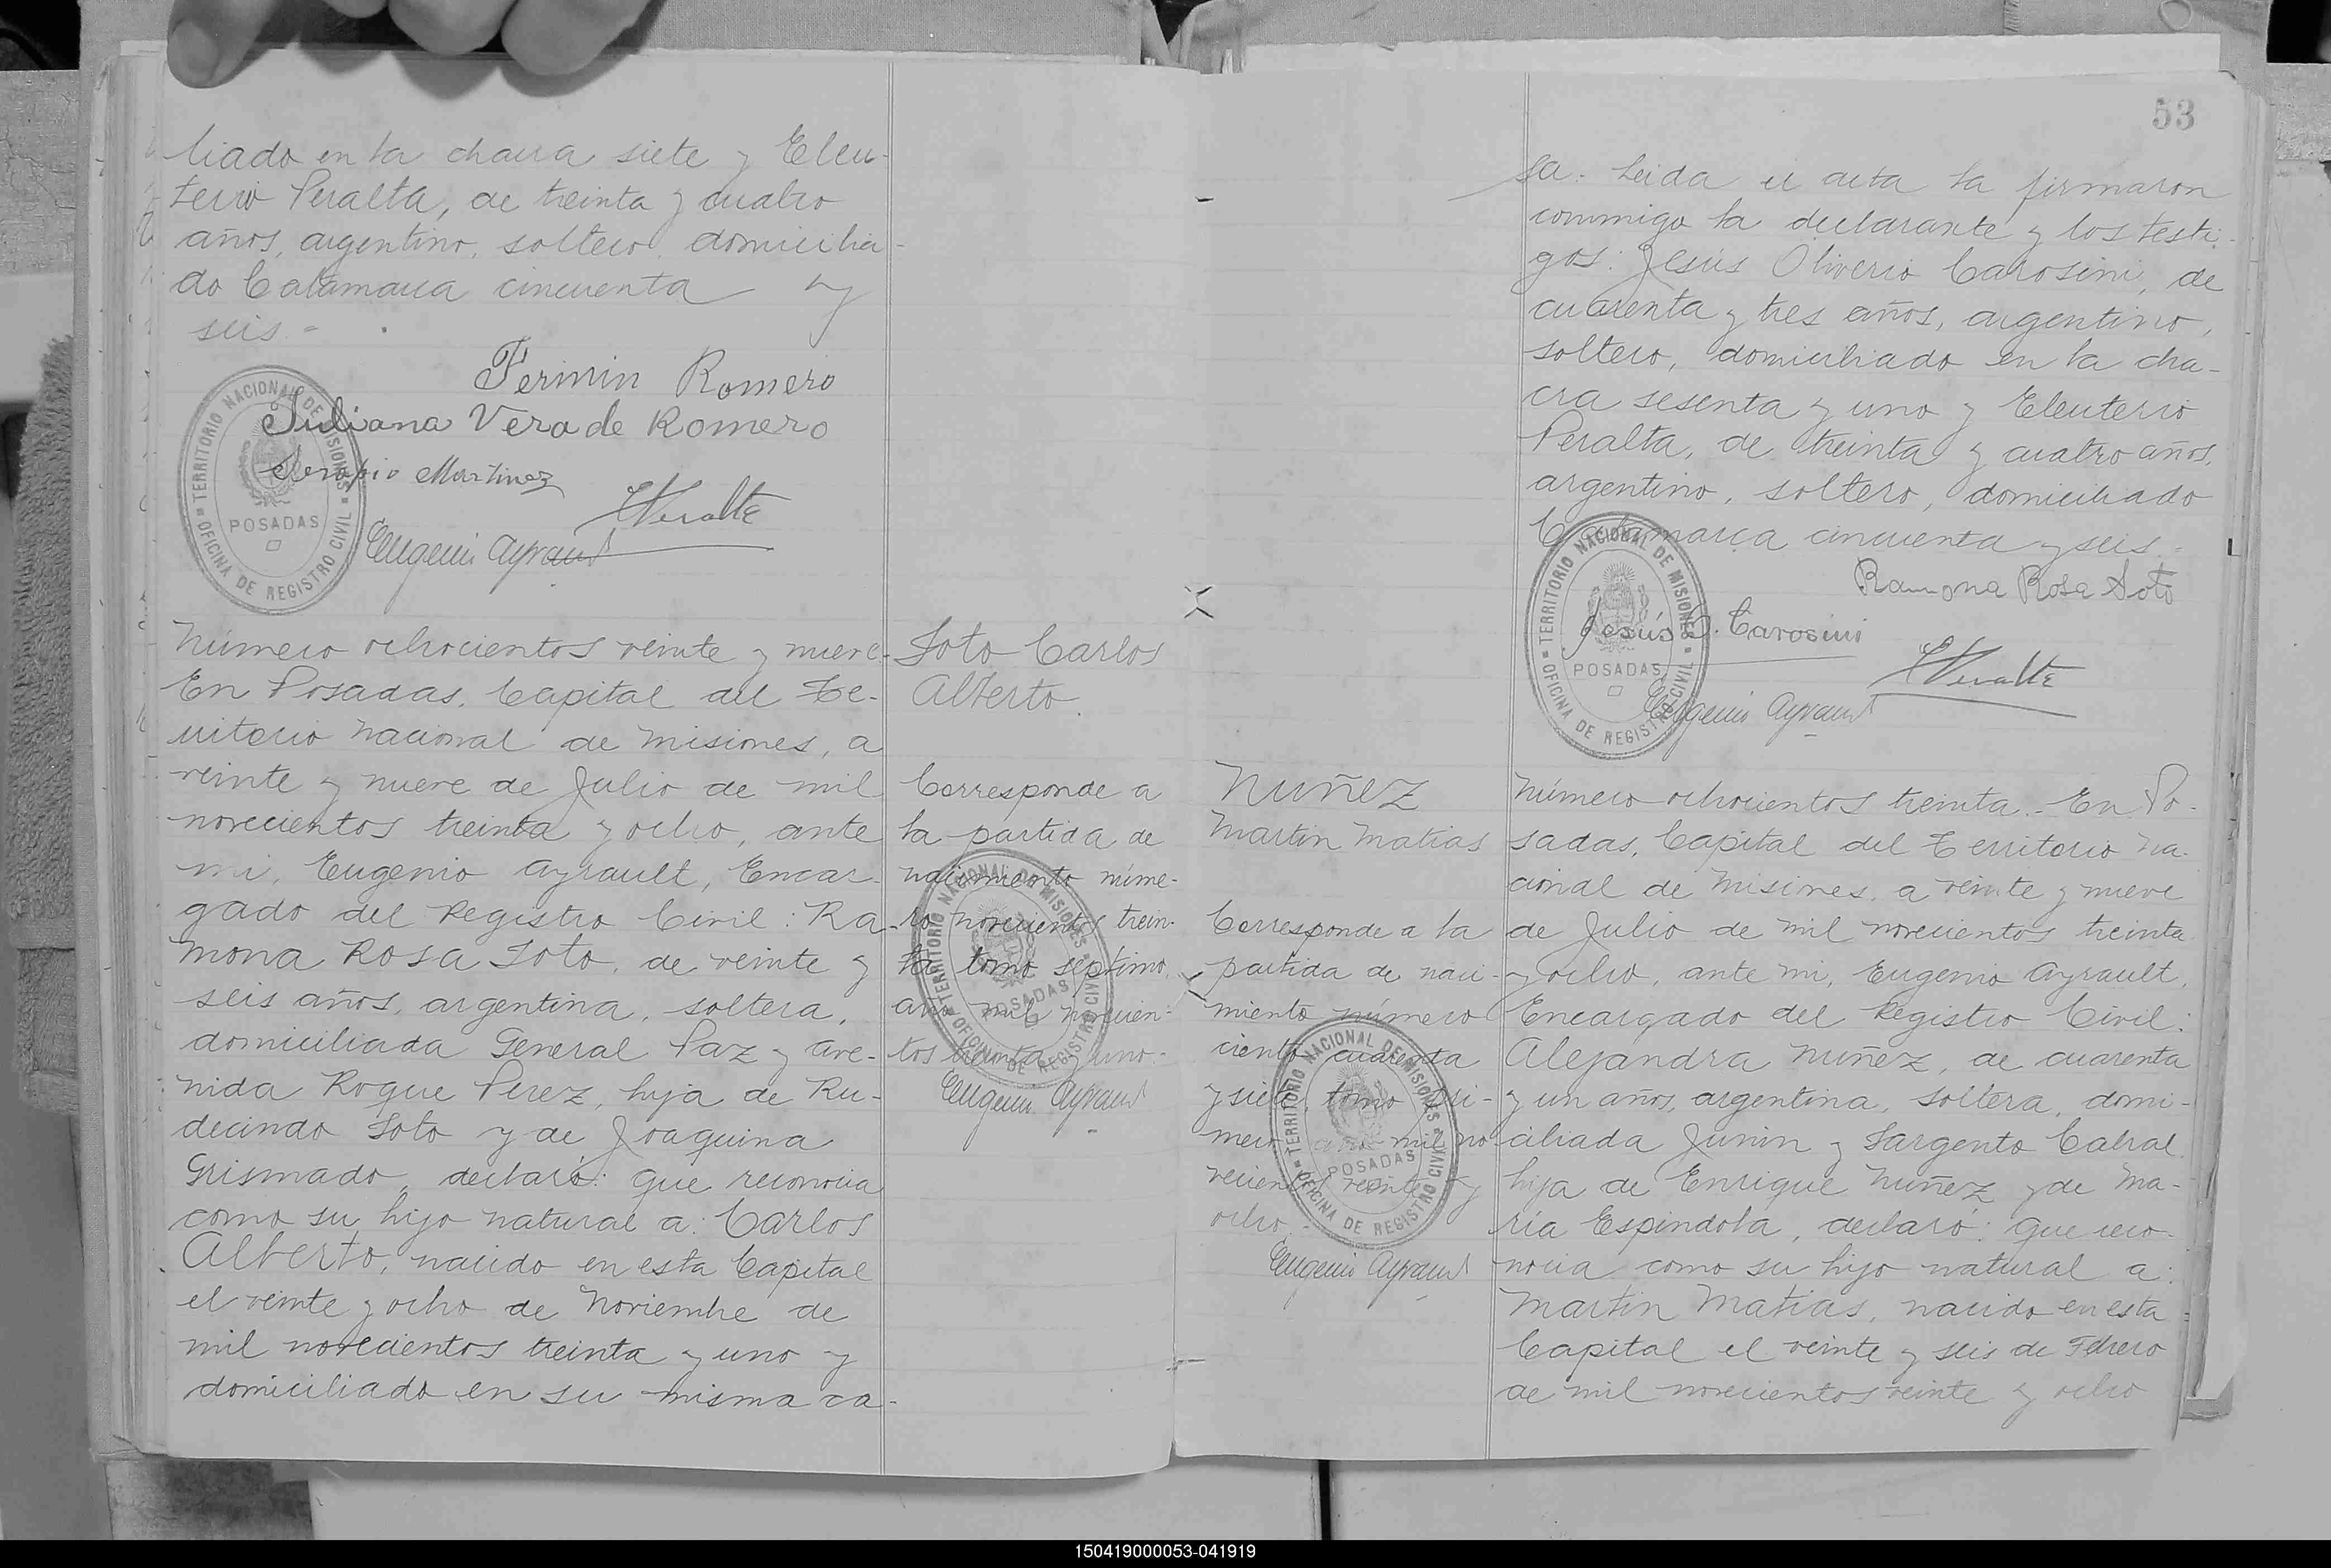 liado en la chacra siete y Eleu-
terio Peralta, de treinta y cuatro
años, argentino, soltero, domicilia-
do Catamarca cincuenta y
seis.-
Fermin Romero
Juliana Vera de Romero
Serapio Martinez
EPeralta
Eugenio Ayrault
TERRITORIO NACIONAL DE MISIONES
POSADAS
OFICINA DE REGISTRO CIVIL
Número ochocientos veinte y nueve.-
En Posadas, Capital del Te-
rritorio Nacional de Misiones, a
veinte y nueve de Julio de mil
novecientos treinta y ocho, ante
mi, Eugenio Ayrault, Encar-
gado del Registro Civil: Ra-
mona Rosa Soto, de veinte y
seis años, argentina, soltera,
domiciliada General Paz y Ave-
nida Roque Perez, hija de Ru-
decindo Soto y de Joaquina
Grismado, declaró: que reconocia
como su hijo natural a: Carlos
Alberto, nacido en esta Capital
el veinte y ocho de Noviembre de
mil novecientos treinta y uno y
domiciliado en su misma ca-
Soto Carlos
Alberto.
Corresponde a
la partida de
nacimiento núme-
ro novecientos trein-
ta tomo séptimo,
año mil novecien-
tos treinta y uno.-
Eugenio Ayrault
TERRITORIO NACIONAL DE MISIONES
POSADAS
OFICINA DE REGISTRO CIVIL
53
sa.- Leida el acta la firmaron
conmigo la declarante y los testi-
gos: Jesús Oliverio Carosini, de
cuarenta y tres años, argentino,
soltero, domiciliado en la cha-
cra sesenta y uno y Eleuterio
Peralta, de treinta y cuatro años,
argentino, soltero, domiciliado
Catamarca cincuenta y seis.-
Ramona Rosa Soto
Jesús O. Carosini
EPeralta
Eugenio Ayrault
TERRITORIO NACIONAL DE MISIONES
POSADAS
OFICINA DE REGISTRO CIVIL
NUÑEZ
Martin Matias
Corresponde a la
partida de naci-
miento número
ciento cuarenta
y siete, tomo pri-
mero, año mil no
vecientos veinte y
ocho.-
Eugenio Ayrault
TERRITORIO NACIONAL DE MISIONES
POSADAS
OFICINA DE REGISTRO CIVIL
Número ochocientos treinta.- En Po-
sadas, Capital del Territorio Na-
cional de Misiones, a veinte y nueve
de Julio de mil novecientos treinta
y ocho, ante mi, Eugenio Ayrault,
Encargado del Registro Civil:
Alejandra Nuñez, de cuarenta
y un años, argentina, soltera, domi-
ciliada Junin y Sargento Cabral,
hija de Enrique Nuñez y de Ma-
ría Espindola, declaró: que reco-
nocia como su hijo natural a:
Martin Matias, nacido en esta
Capital el veinte y seis de Febrero
de mil novecientos veinte y ocho
150419000053-041919